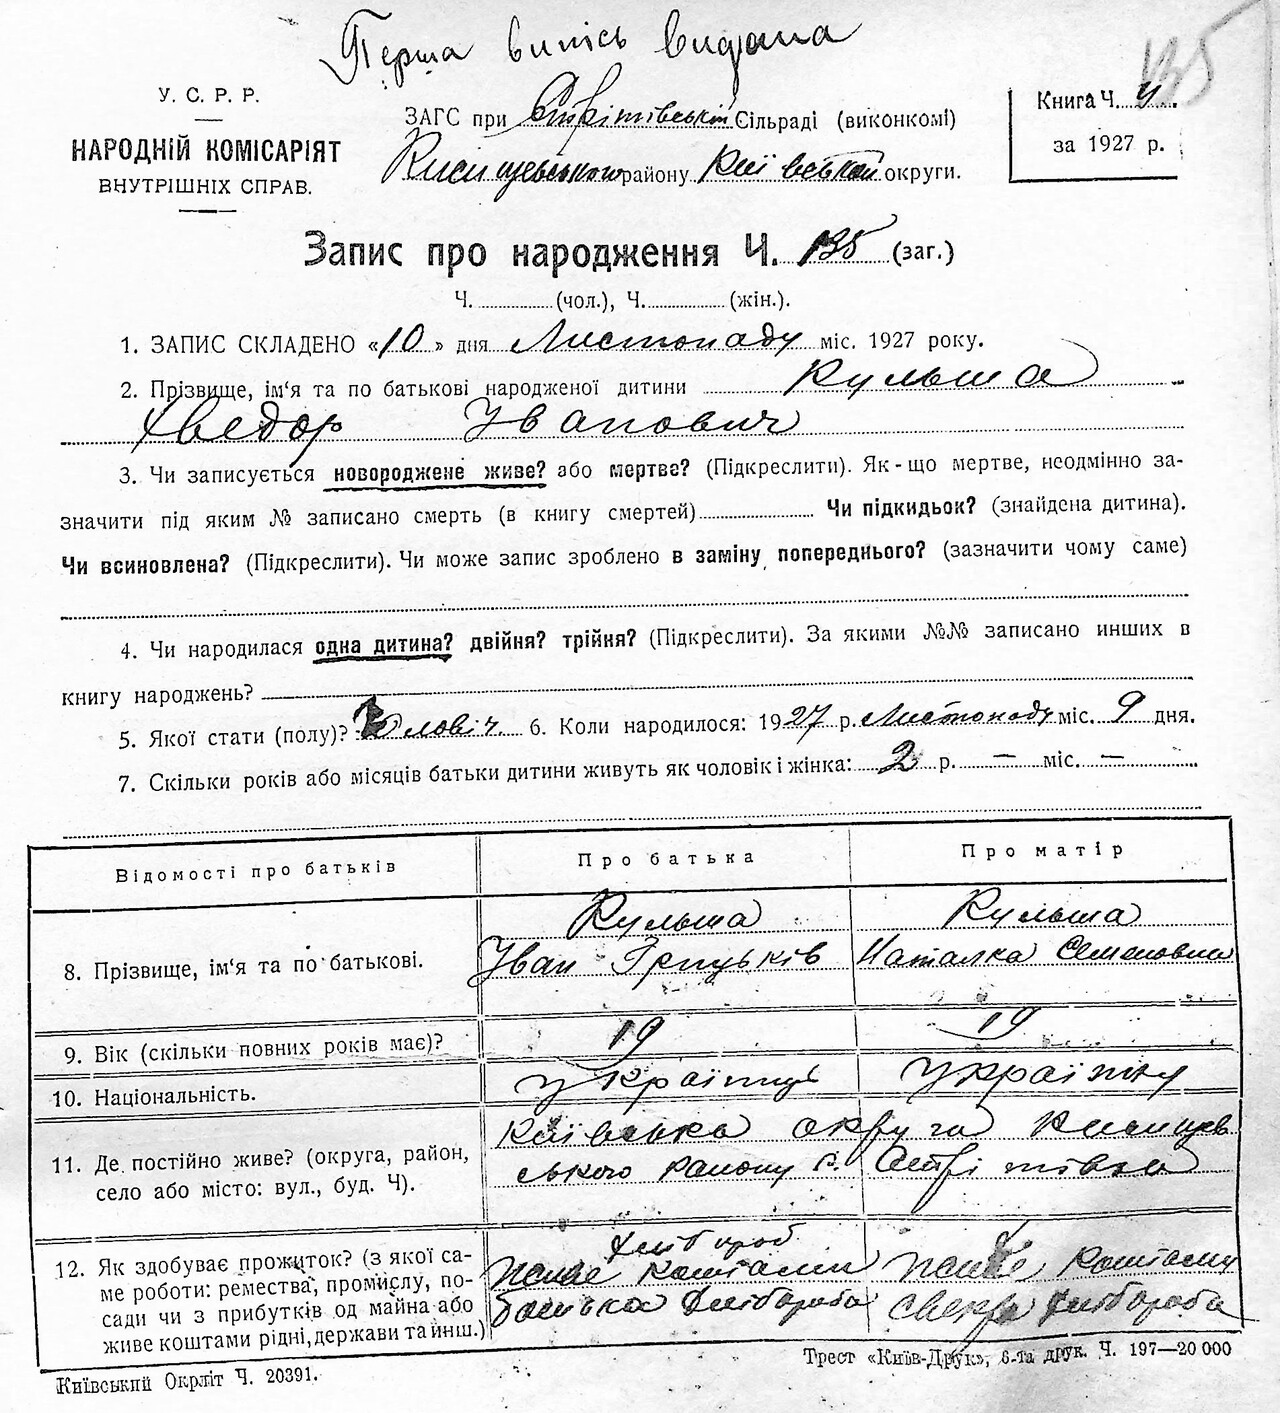 135
Перша випись видана
У. С. Р. Р.
НАРОДНІЙ КОМІСАРІЯТ
ВНУТРІШНІХ СПРАВ.
ЗАГС при Стрітівській Сільраді (виконкомі)
району Київської округи.
Книга Ч. 4
за 1927 р.
Запис про народження Ч. 135 (заг.)
Ч. (чол.), Ч. (жін.).
1. ЗАПИС СКЛАДЕНО «10» дня Листопаду міс. 1927 року.
2. Прізвище, ім'я та по батькові народженої дитини Кульша
Хведор Іванович
3. Чи записується новороджене живе? або мертве? (Підкреслити). Як-що мертве, неодмінно за-
значити під яким № записано смерть (в книгу смертей) Чи підкидьок? (знайдена дитина).
Чи всиновлена? (Підкреслити). Чи може запис зроблено в заміну попереднього? (зазначити чому саме)
4. Чи народилася одна дитина? двійня? трійня? (Підкреслити). За якими №№ записано инших в
книгу народжень?
5. Якої стати (полу)? Чловіч. 6. Коли народилося: 1927 р. Листопаду міс. 9 дня.
7. Скільки років або місяців батьки дитини живуть як чоловік і жінка: 2 р. — міс. —
Відомості про батьків Про батька Про матір
8. Прізвище, ім'я та по батькові. Кульша Іван Грицьків Кульша Наталка Семеновна
9. Вік (скільки повних років має)? 19 19
10. Національність. Українць Україนку
11. Де постійно живе? (округа, район, Київська округа
село або місто: вул., буд. Ч). ського району с. Стрітівка
12. Як здобуває прожиток? (з якої са- Хлібороб
ме роботи: ремества, промислу, по- живе коштами живе коштами
сади чи з прибутків од майна або батька хлібороба свекра хлібороба
живе коштами рідні, держави та инш.)
Київський Окрліт Ч. 20391.
Трест «Київ-Друк», 6-та друк. Ч. 197—20 000